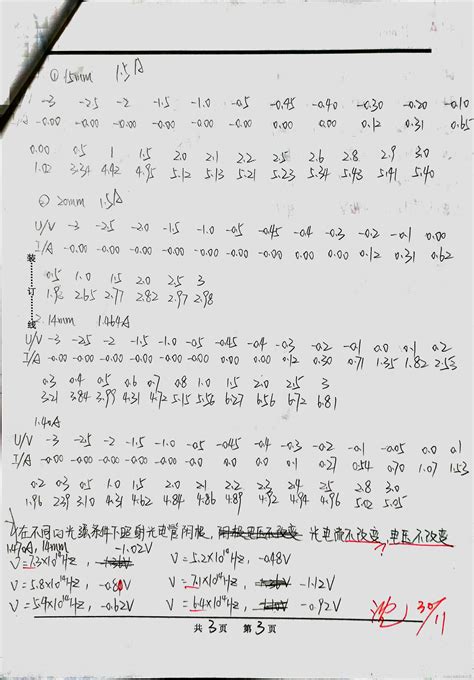 ① 15mm 1.5A
-3 -2.5 -2 -1.5 -1.0 -0.5 -0.45 -0.40 -0.30 -0.20 -0.10
-0.00 -0.00 -0.00 -0.00 -0.00 -0.00 0.00 0.00 0.12 0.31 0.65
0.00 0.5 1 1.5 2.0 2.1 2.2 2.5 2.6 2.8 2.9 3.0
1.02 3.34 4.42 4.95 5.12 5.13 5.21 5.23 5.34 5.43 5.41 5.40
② 20mm 1.5A
U/V -3 -2.5 -2.0 -1.5 -1.0 -0.5 -0.45 -0.4 -0.3 -0.2 -0.1 0.00
I/A -0.00 -0.00 -0.00 -0.00 -0.00 -0.00 -0.00 0.00 0.12 0.31 0.62
装
0.5 1.0 1.5 2.0 2.5 3
订
2.65 2.77 2.82 2.97 2.98
线
2.14mm 1.464A
U/V -3 -2.5 -2 -1.5 -1.0 -0.5 -0.45 -0.4 -0.3 -0.2 -0.1 0.0 0.1 0.2
I/A -0.00 -0.00 -0.00 -0.00 -0.00 -0.00 0.00 0.00 0.12 0.30 0.71 1.35 1.82 2.53
0.3 0.4 0.5 0.6 0.7 0.8 1.0 1.5 2.0 2.5 3
3.21 3.84 3.99 4.31 4.72 5.15 5.56 6.27 6.56 6.72 6.81
1.40A
U/V -3 -2.5 -2 -1.5 -1.0 -0.5 -0.45 -0.4 -0.3 -0.2 -0.1 -0.05 0.0 0.1
I/A -0.00 -0.00 -0.00 -0.00 -0.00 -0.0 0.0 0.1 0.27 0.54 0.70 1.07 1.53
0.2 0.3 0.5 1.0 1.5 1.6 1.7 2.0 2.4 2.5 2.8 3.0
1.96 2.39 3.10 4.31 4.62 4.84 4.86 4.89 4.92 4.94 4.96 5.02 5.05
在不同的光源条件下照射光电管阴极, 光电流不改变, 电压不改变
1.470A, 14mm -1.02V
V=7.3×10¹⁴Hz, V=5.2×10¹⁴Hz, -0.48V
V=5.8×10¹⁴Hz, V=7.1×10¹⁴Hz -1.12V
V=5.4×10¹⁴Hz, -0.62V V=6.4×10¹⁴Hz, -0.92V
30/11
共 3 页 第 3 页